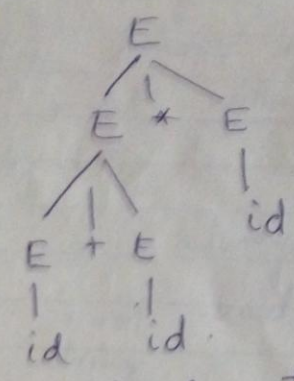 E
E * E
id
E + E
id id